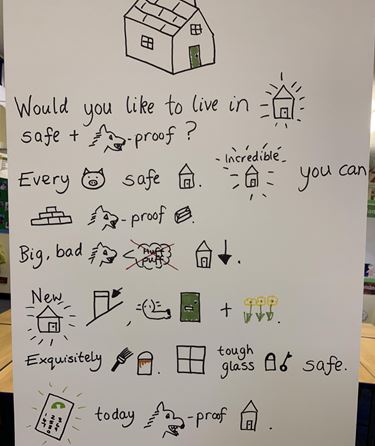 Would you like to live in
safe + -proof?
Every safe .
Incredible
you can
-proof .
Big, bad Huff Puff .
New
, + .
Exquisitely . tough glass safe.
today -proof .